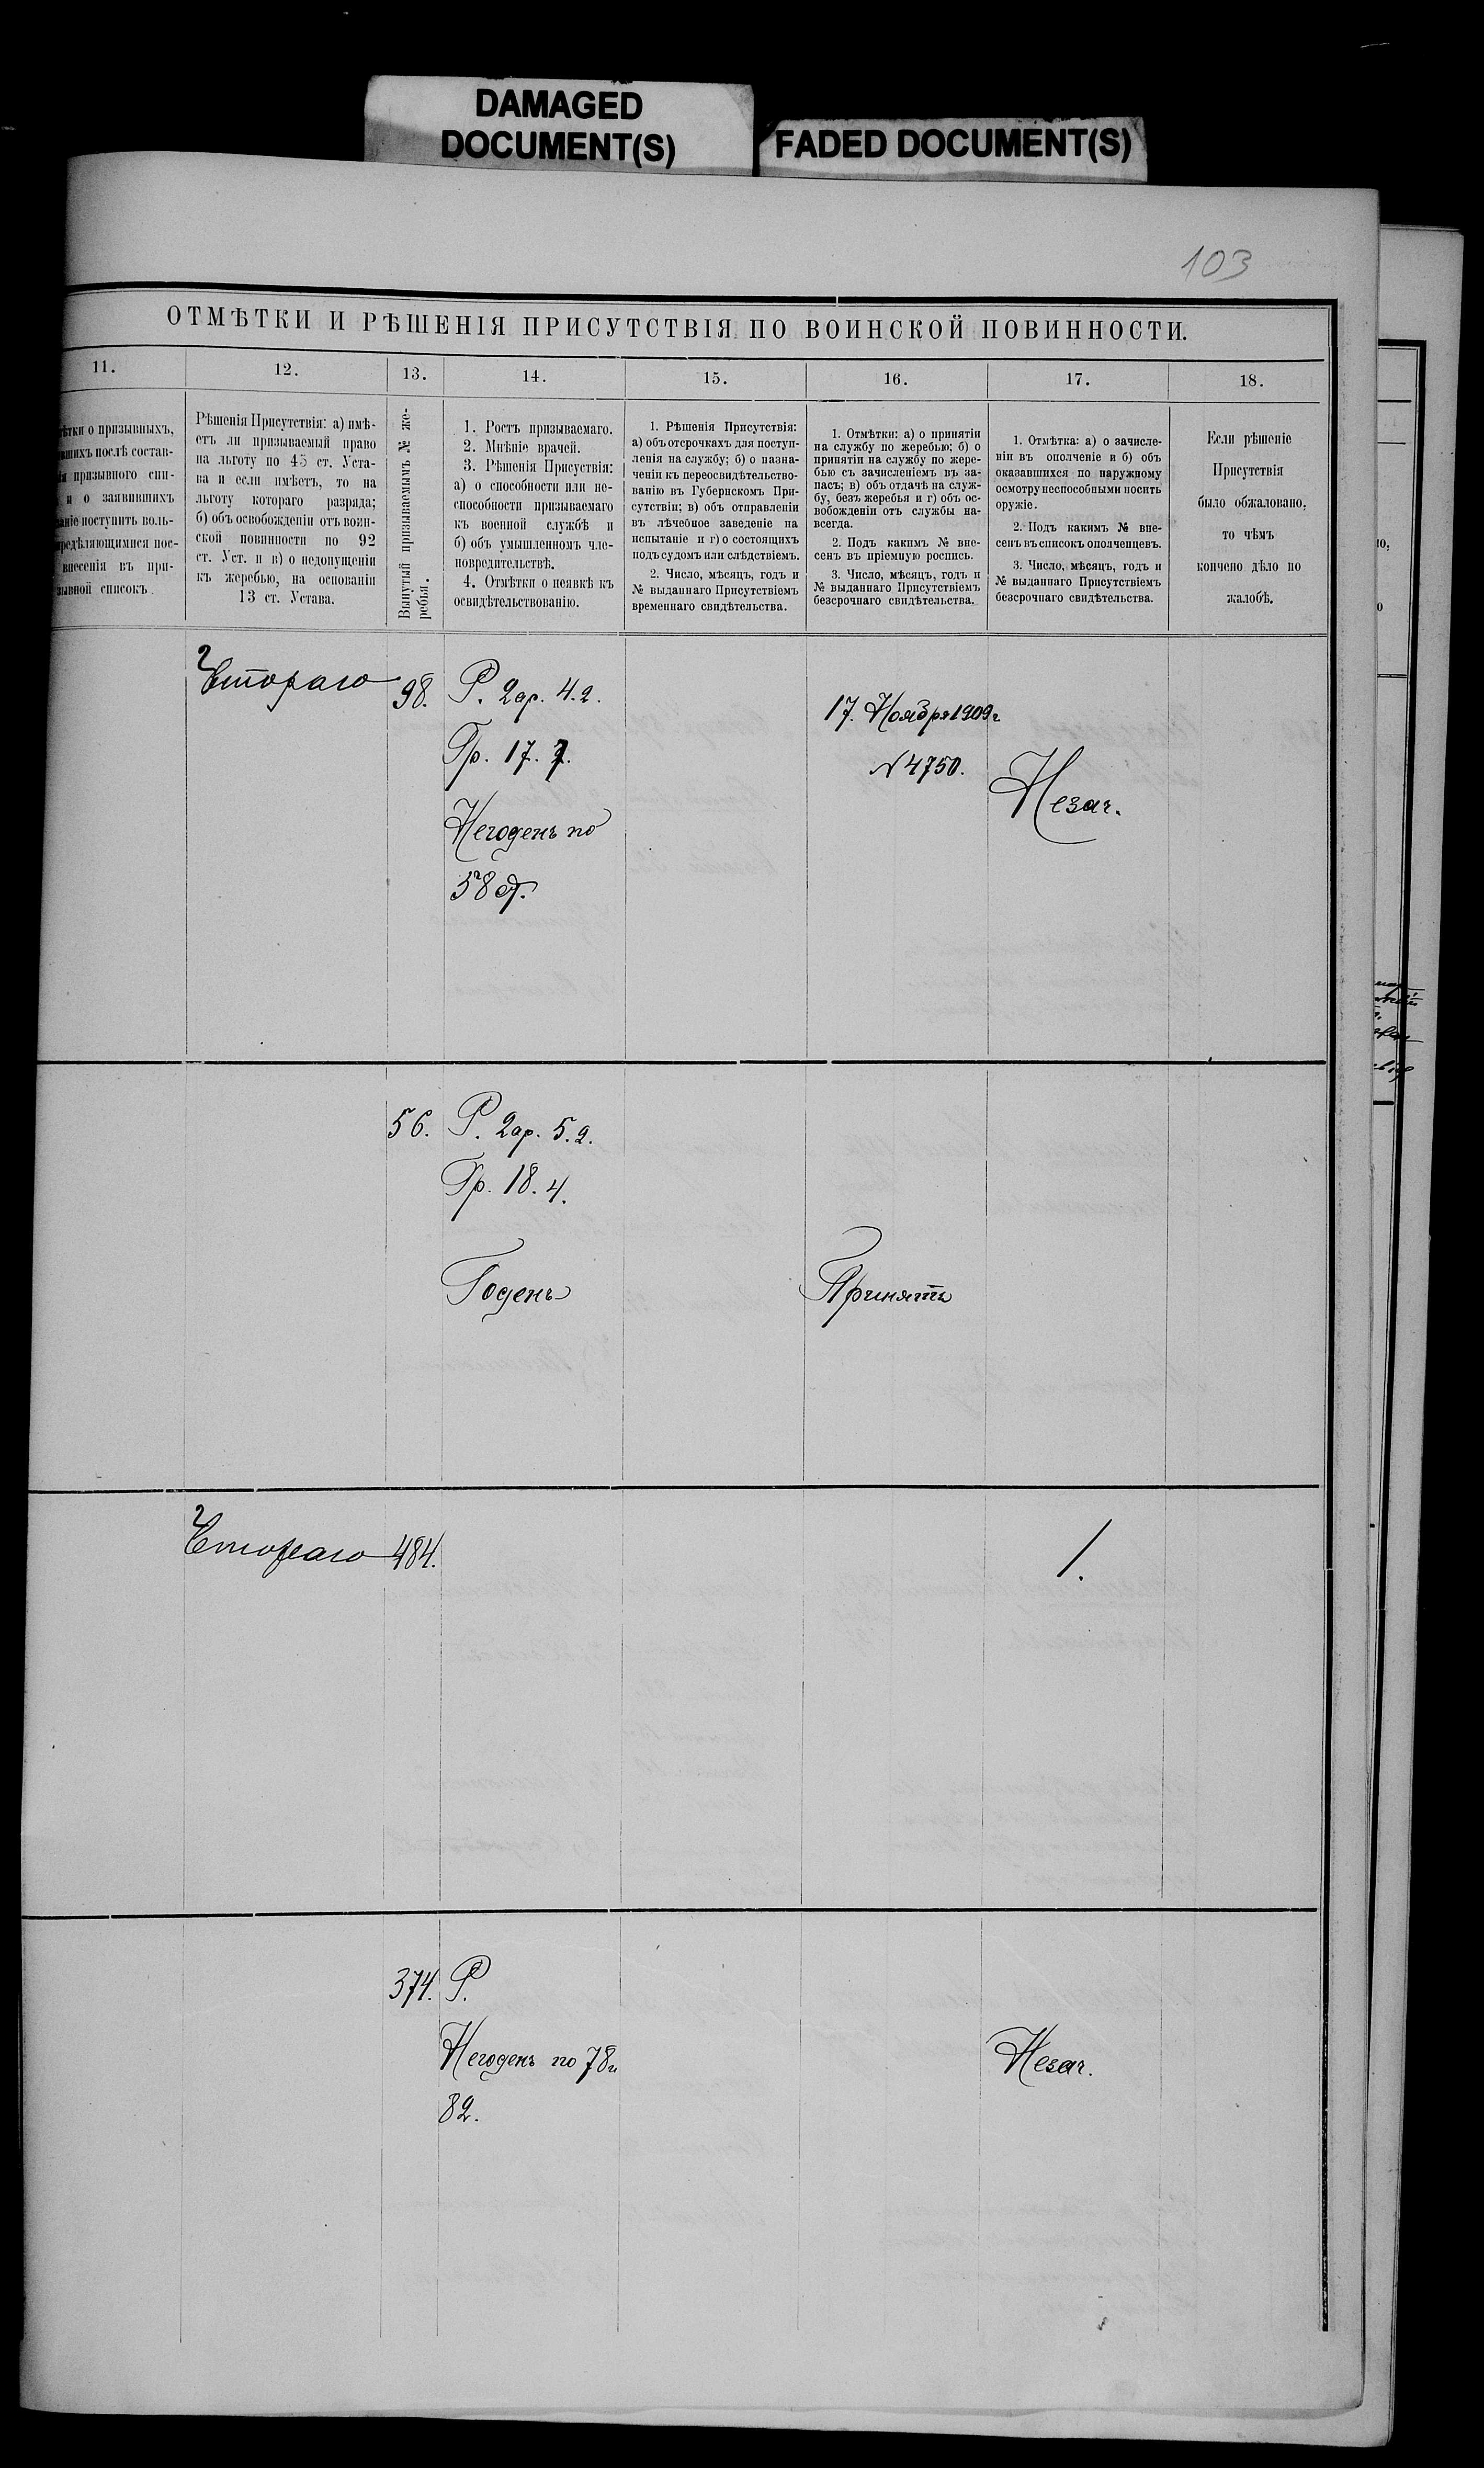 DAMAGED
DOCUMENT(S)
FADED DOCUMENT(S)
103
ОТМѢТКИ И РѢШЕНІЯ ПРИСУТСТВІЯ ПО ВОИНСКОЙ ПОВИННОСТИ.
11.
о призывныхъ,
послѣ состав-
призывного спи-
и о заявившихъ
поступить воль-
пос-
внесенія въ при-
списокъ.
12.
Рѣшенія Присутствія: а) имѣ-
етъ ли призываемый право
на льготу по 45 ст. Уста-
ва и если имѣетъ, то на
льготу котораго разряда;
б) объ освобожденіи отъ воин-
ской повинности по 92
ст. Уст. и в) о недопущеніи
къ жеребью, на основаніи
13 ст. Устава.
13.
Вынутый призываемымъ № же-
ребья.
14.
1. Ростъ призываемаго.
2. Мнѣніе врачей.
3. Рѣшенія Присуствія:
а) о способности или не-
способности призываемаго
къ военной службѣ и
б) объ умышленномъ чле-
новредительствѣ.
4. Отмѣтки о неявкѣ къ
освидѣтельствованію.
15.
1. Рѣшенія Присутствія:
а) объ отсрочкахъ для поступ-
ленія на службу; б) о назна-
ченіи къ переосвидѣтельство-
ванію въ Губернскомъ При-
сутствіи; в) объ отправленіи
въ лѣчебное заведеніе на
испытаніе и г) о состоящихъ
подъ судомъ или слѣдствіемъ.
2. Число, мѣсяцъ, годъ и
№ выданнаго Присутствіемъ
временнаго свидѣтельства.
16.
1. Отмѣтки: а) о принятіи
на службу по жеребью; б) о
принятіи на службу по жере-
бью съ зачисленіемъ въ за-
пасъ; в) объ отдачѣ на служ-
бу, безъ жеребья и г) объ ос-
вобожденіи отъ службы на-
всегда.
2. Подъ какимъ № вне-
сенъ въ пріемную роспись.
3. Число, мѣсяцъ, годъ и
№ выданнаго Присутствіемъ
безсрочнаго свидѣтельства.
17.
1. Отмѣтка: а) о зачисле-
ніи въ ополченіе и б) объ
оказавшихся по наружному
осмотру неспособными носить
оружіе.
2. Подъ какимъ № вне-
сенъ въ списокъ ополченцевъ.
3. Число, мѣсяцъ, годъ и
№ выданнаго Присутствіемъ
безсрочнаго свидѣтельства.
18.
Если рѣшеніе
Присутствія
было обжаловано,
то чѣмъ
кончено дѣло по
жалобѣ.
Втораго
98.
Р. 2ар. 4.2.
Гр. 17.
Негоденъ по
58
17. Ноября 1909г
№ 4750.
Незач.
56.
Р. 2ар. 5.2.
Гр. 18.4.
Годенъ
Принятъ
Втораго
484.
1.
374.
Р.
Негоденъ по 78 и
82.
Незач.